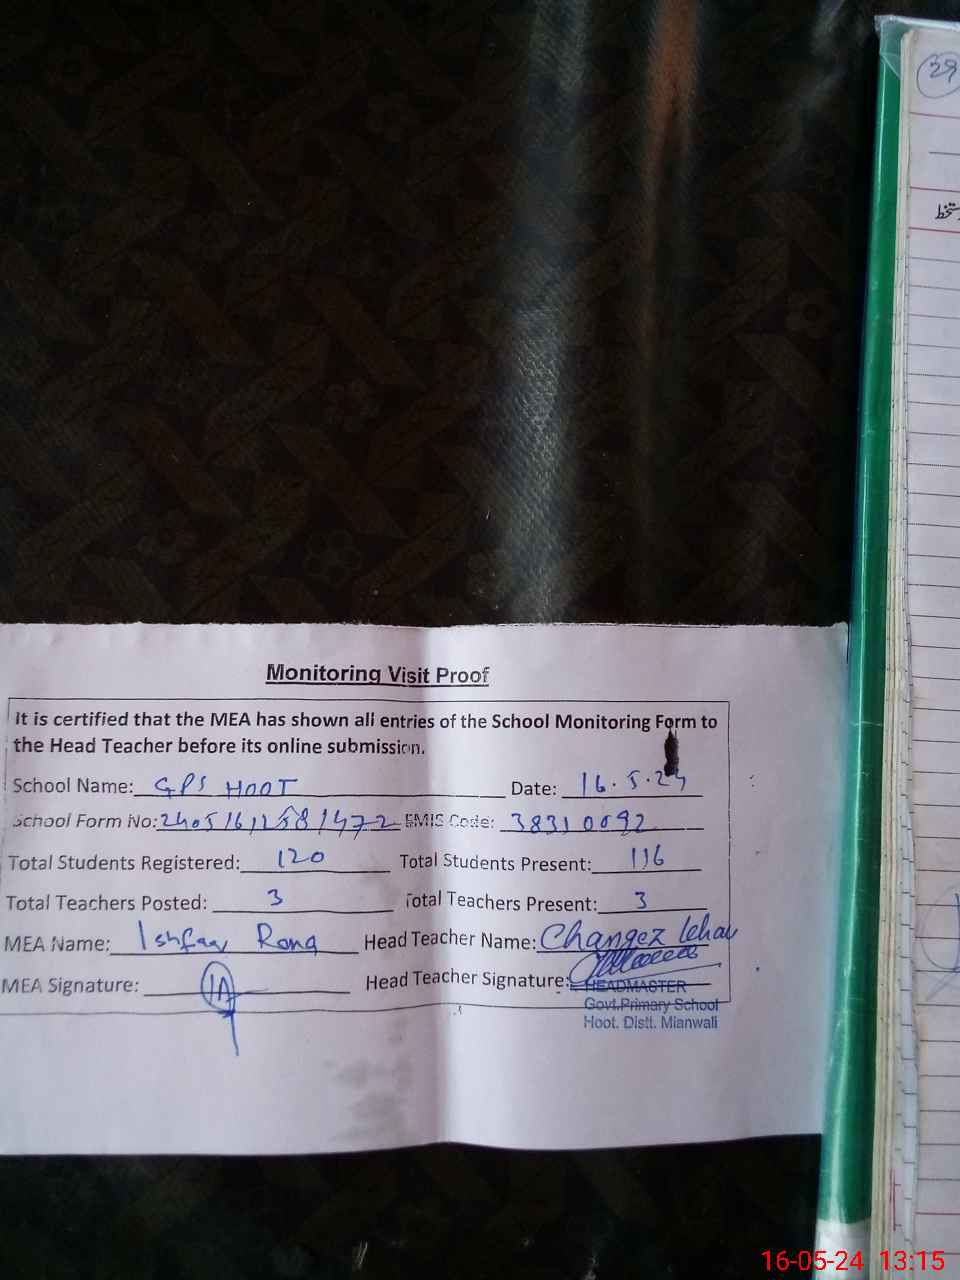 39
دستخط
Monitoring Visit Proof
It is certified that the MEA has shown all entries of the School Monitoring Form to
the Head Teacher before its online submission.
School Name: GPS HOOT Date: 16.5.24
School Form No: EMIS Code: 38310092
Total Students Registered: 120 Total Students Present: 116
Total Teachers Posted: 3 Total Teachers Present: 3
MEA Name: Ishfaq Head Teacher Name: Changez
MEA Signature: IA Head Teacher Signature:
HEADMASTER
Govt.Primary School
Hoot. Distt. Mianwali
16-05-24 13:15